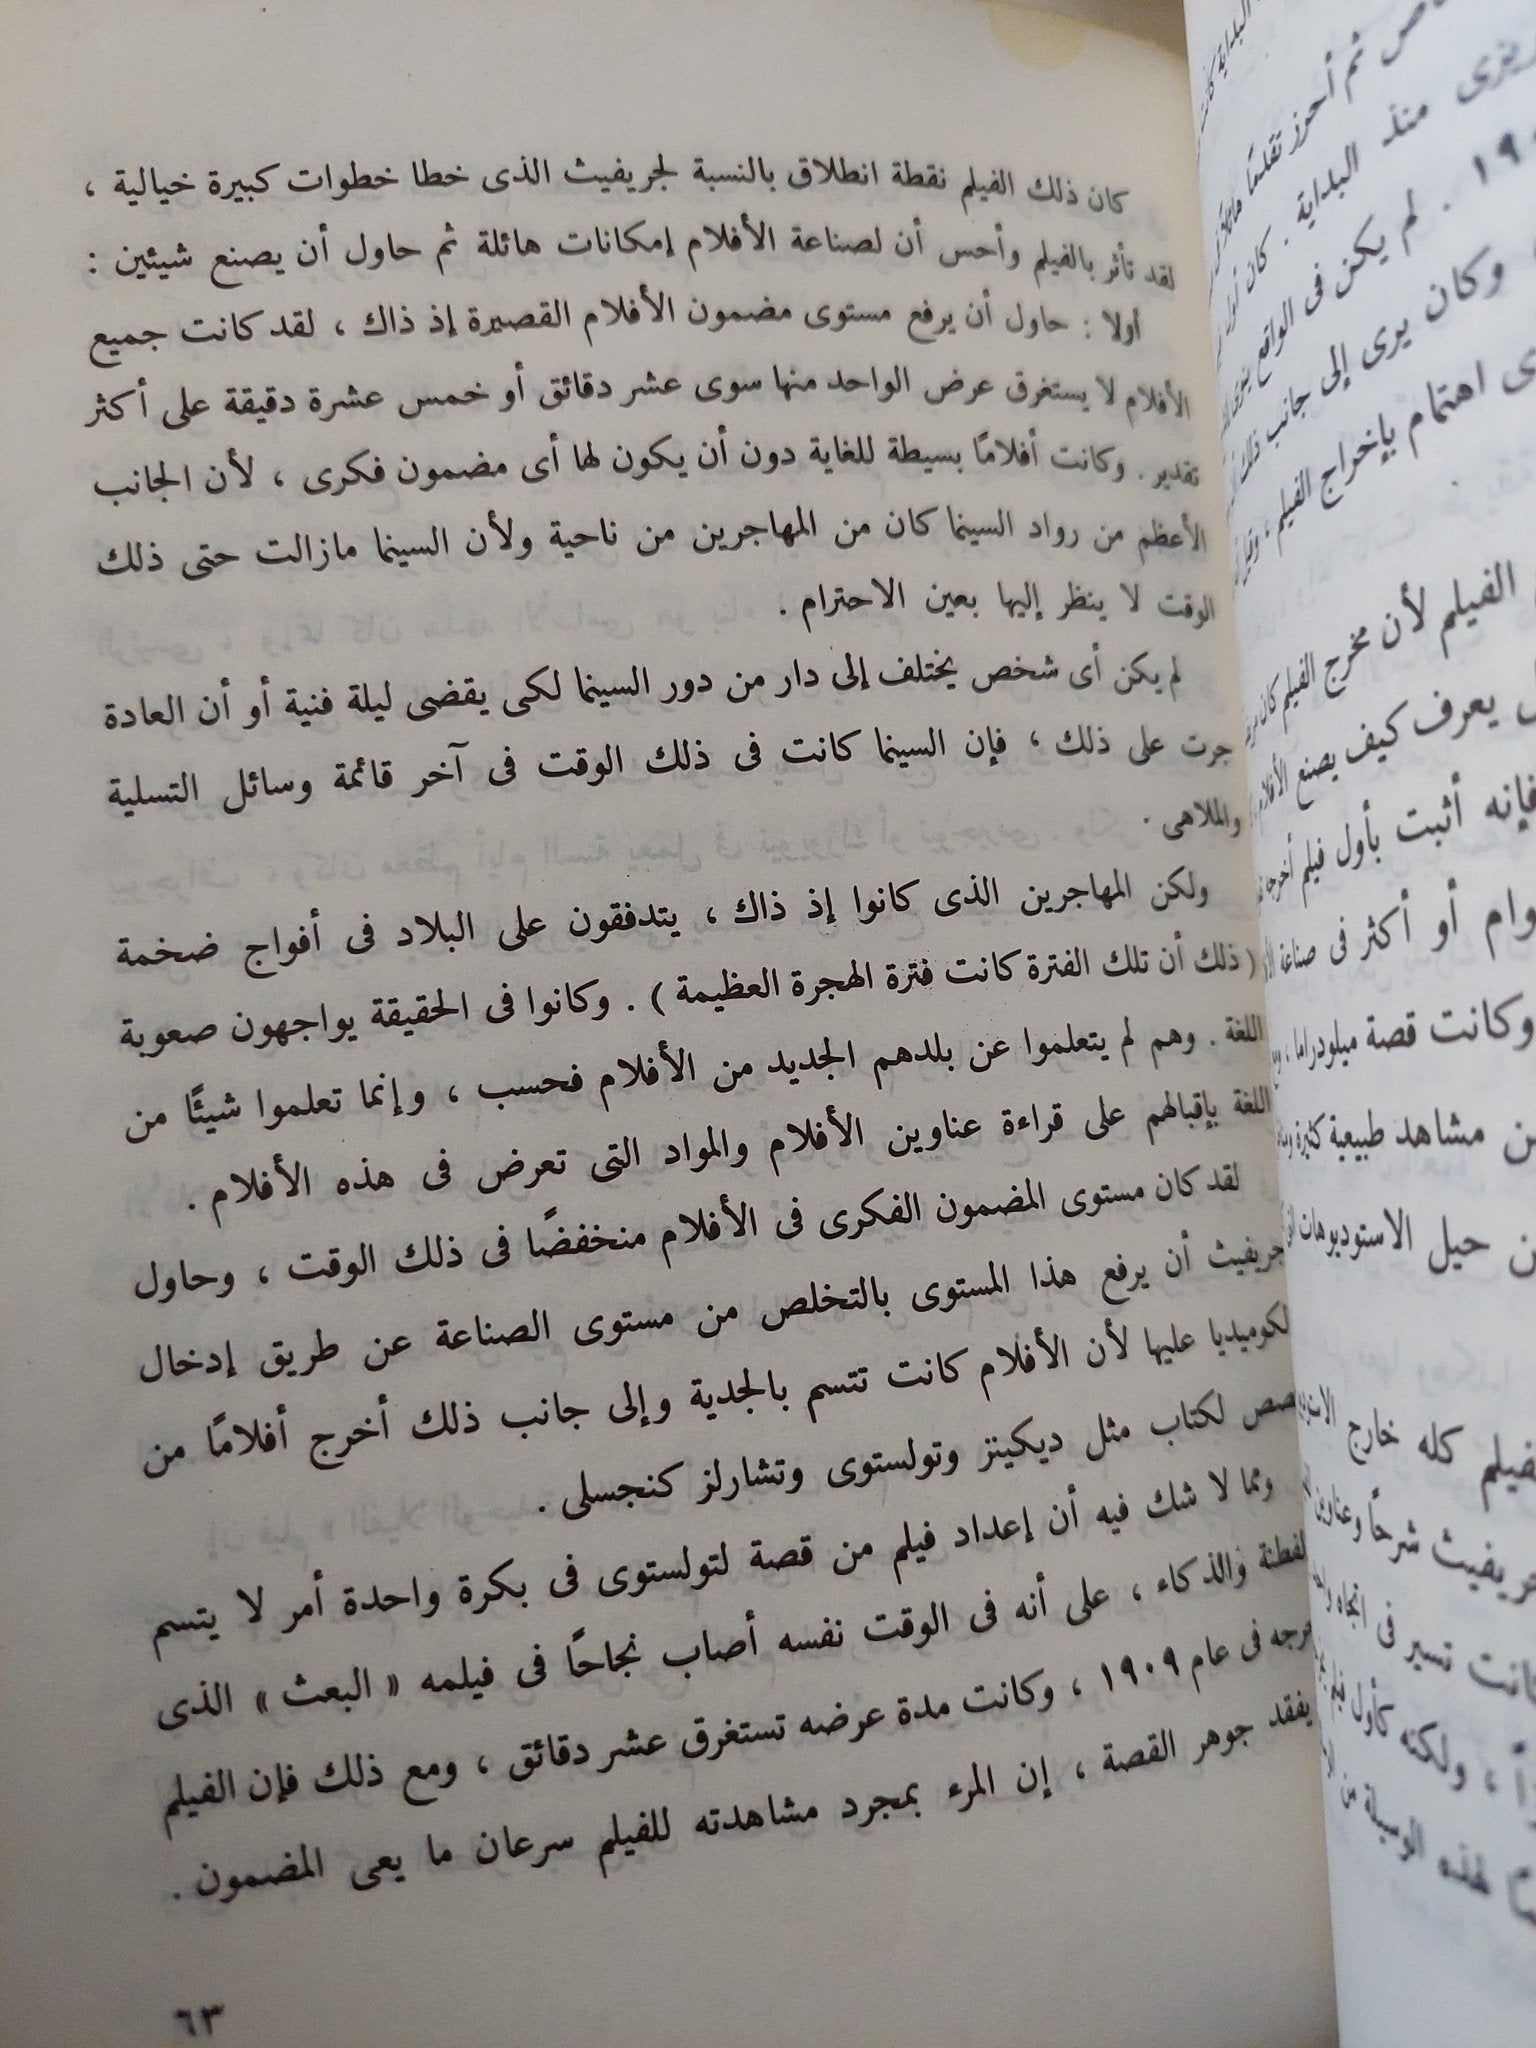 كان ذلك الفيلم نقطة انطلاق بالنسبة لجريفيث الذى خطا خطوات كبيرة خيالية ،
لقد تأثر بالفيلم وأحس أن لصناعة الأفلام إمكانات هائلة ثم حاول أن يصنع شيئين :
أولا : حاول أن يرفع مستوى مضمون الأفلام القصيرة إذ ذاك ، لقد كانت جميع
الأفلام لا يستغرق عرض الواحد منها سوى عشر دقائق أو خمس عشرة دقيقة على أكثر
تقدير . وكانت أفلامًا بسيطة للغاية دون أن يكون لها أى مضمون فكرى ، لأن الجانب
الأعظم من رواد السينما كان من المهاجرين من ناحية ولأن السينما مازالت حتى ذلك
الوقت لا ينظر إليها بعين الاحترام .
لم يكن أى شخص يختلف إلى دار من دور السينما لكى يقضى ليلة فنية أو أن العادة
جرت على ذلك ، فإن السينما كانت فى ذلك الوقت فى آخر قائمة وسائل التسلية
والملاهى .
ولكن المهاجرين الذى كانوا إذ ذاك ، يتدفقون على البلاد فى أفواج ضخمة
( ذلك أن تلك الفترة كانت فترة الهجرة العظيمة ) . وكانوا فى الحقيقة يواجهون صعوبة
اللغة . وهم لم يتعلموا عن بلدهم الجديد من الأفلام فحسب ، وإنما تعلموا شيئًا من
اللغة بإقبالهم على قراءة عناوين الأفلام والمواد التى تعرض فى هذه الأفلام .
لقد كان مستوى المضمون الفكرى فى الأفلام منخفضًا فى ذلك الوقت ، وحاول
جريفيث أن يرفع هذا المستوى بالتخلص من مستوى الصناعة عن طريق إدخال
لكوميديا عليها لأن الأفلام كانت تتسم بالجدية وإلى جانب ذلك أخرج أفلامًا من
صص لكتاب مثل ديكينز وتولستوى وتشارلز كنجسلى .
ومما لا شك فيه أن إعداد فيلم من قصة لتولستوى فى بكرة واحدة أمر لا يتسم
لفطنة والذكاء ، على أنه فى الوقت نفسه أصاب نجاحًا فى فيلمه « البعث » الذى
خرجه فى عام ١٩٠٩ ، وكانت مدة عرضه تستغرق عشر دقائق ، ومع ذلك فإن الفيلم
يفقد جوهر القصة ، إن المرء بمجرد مشاهدته للفيلم سرعان ما يعى المضمون .
٦٣
ثم أحرز تقدمًا
منذ البداية . كان أول
. لم يكن فى الواقع
وكان يرى إلى جانب ذلك
اهتمام بإخراج الفيلم ،
الفيلم لأن مخرج الفيلم كان
يعرف كيف يصنع الأفلام
فإنه أثبت بأول فيلم أخرجه
أو أكثر فى صناعة
وكانت قصة ميلودراما ،
مشاهد طبيعية كثيرة
حيل الاستوديوهات
كله خارج
شرحًا وعناوين
تسير فى اتجاه
، ولكنه كأول فيلم
لهذه الوسيلة من